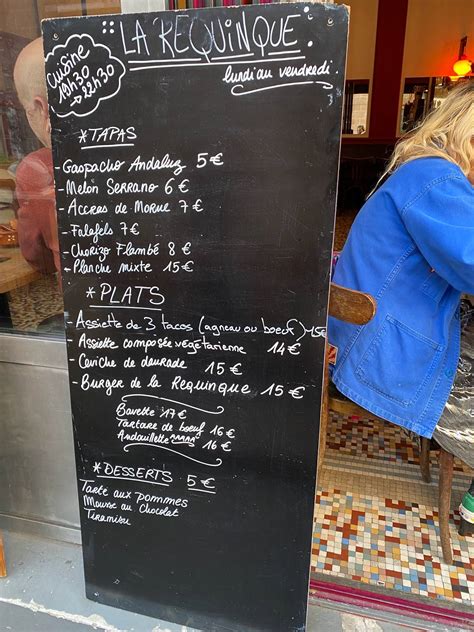 LA REQUINQUE.
lundi au vendredi.
Cuisine
19h30
→ 22h30
*TAPAS
- Gaspacho Andaluz 5€
- Melon Serrano 6€
- Accras de Morue 7€
- Falafels 7€
- Chorizo Flambé 8€
- Planche mixte 15€
*PLATS
- Assiette de 3 tacos (agneau ou boeuf) 15€
- Assiette composée végétarienne 14€
- Ceviche de daurade 15€
- Burger de la Requinque 15€
Bavette 17€
Tartare de boeuf 16€
Andouillette 16€
*DESSERTS 5€
Tarte aux pommes
Mousse au chocolat
Tiramisu